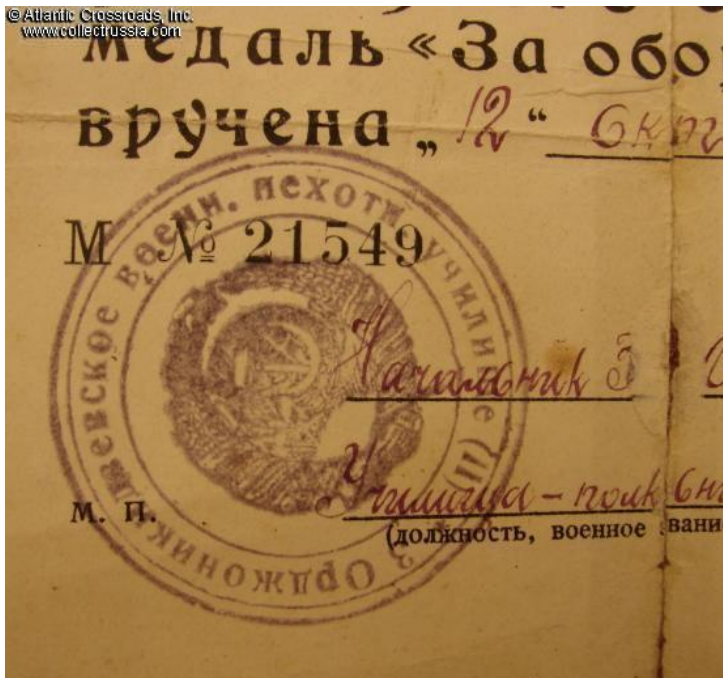 © Atlantic Crossroads, Inc.
www.collectrussia.com
медаль «За обо
вручена „12“ окт
М № 21549
2 Орджоникидзевское военн. пехотн. училище (II)
Начальник
Училища - полковни
М. П.
(должность, военное звани